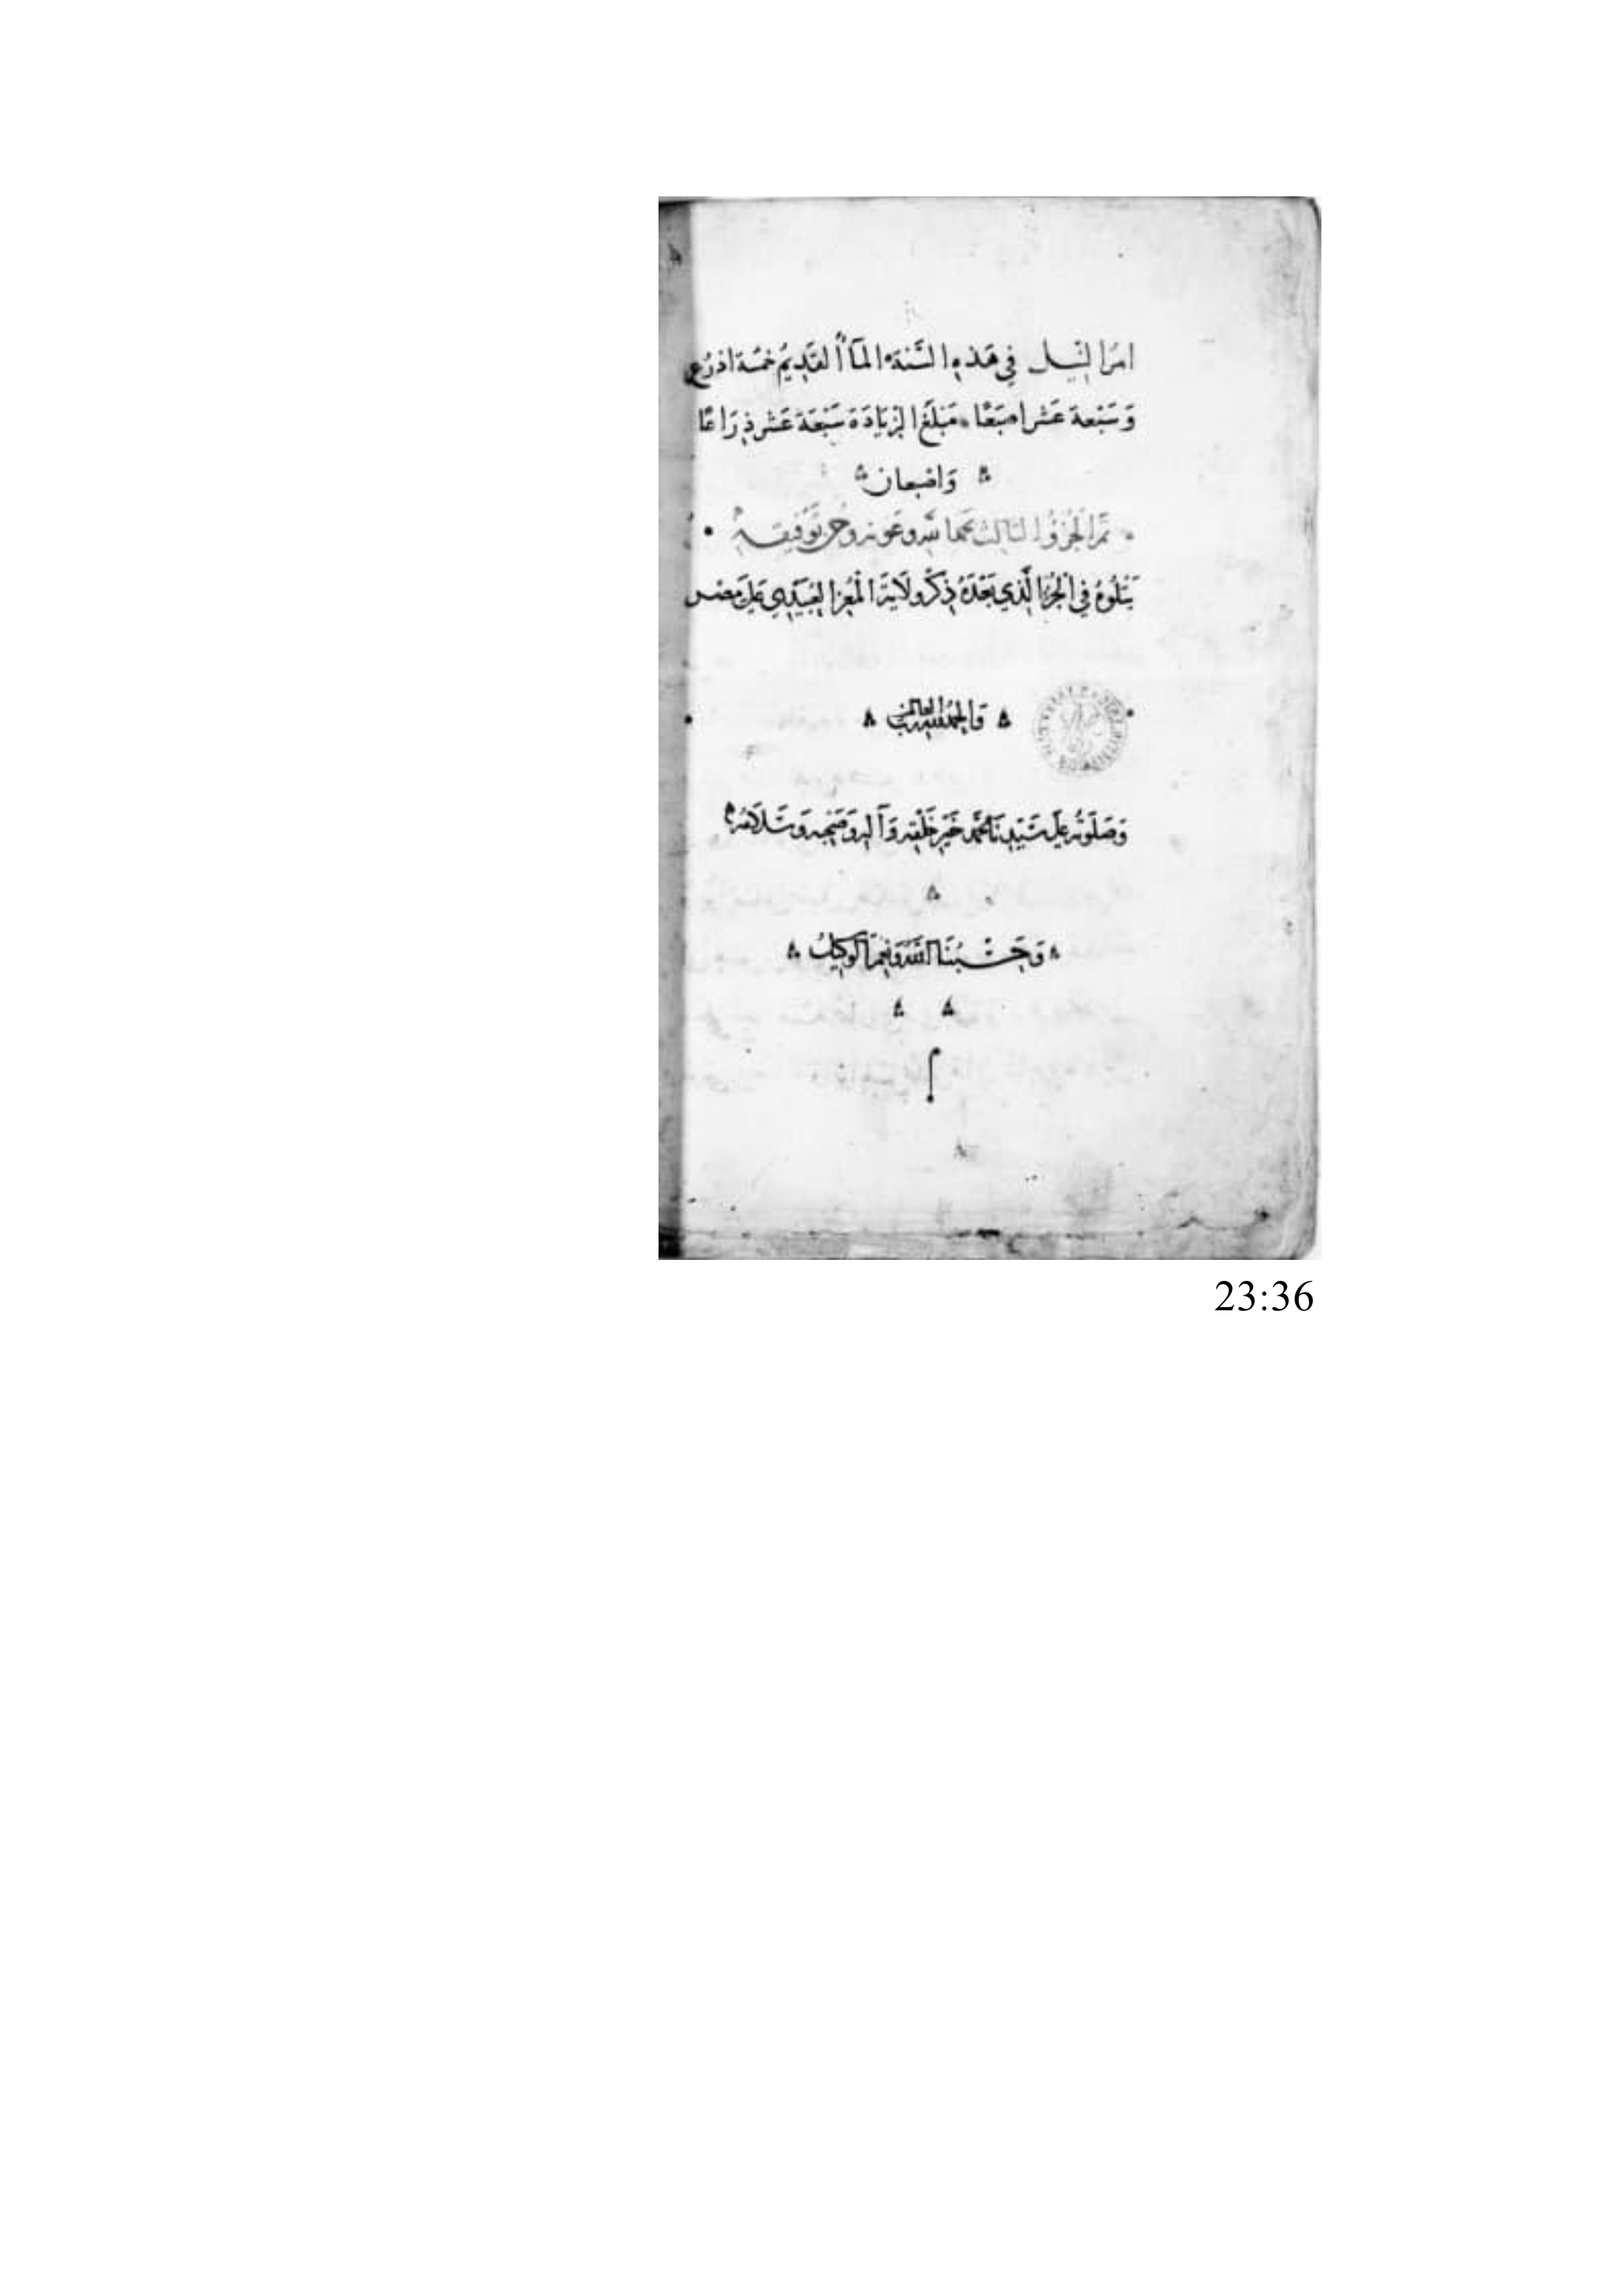 امرُ النِّيل في هَذه السَّنة الماأُ القَدِيمُ خمسَة اذرُع
وَسَبْعة عَشر اصْبَعًا مَبْلغ الزِيَادَة سَبْعَة عَشر ذِرَاعًا
وَاصْبعان
تمَّ الْجُزْؤُ الثالث بحمد اللهِ وعَونه وحُسن تَوْفيقهِ
يَتْلُوهُ فِي الْجُزءِ الَّذِي بَعْدَهُ ذِكْر ولَايَة الْمُعِزِّ العُبَيْدِي عَلَى مِصْر
وَالْحَمْدُ للهِ رَبِّ العَالَمين
وَصَلَوتُه عَلَى سَيِّدِنَا مُحَمَّدٍ خَيْرِ خَلْقِه وَآلِهِ وَصَحْبِه وَسَلَامُه
وَحَسْبُنَا اللهُ وَنِعْمَ الْوَكِيلُ
23:36